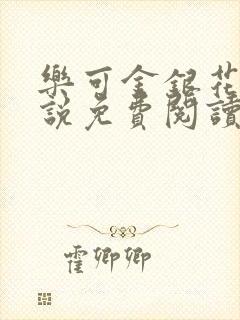 樂可金銀花
說免費閱讀
霍卿卿